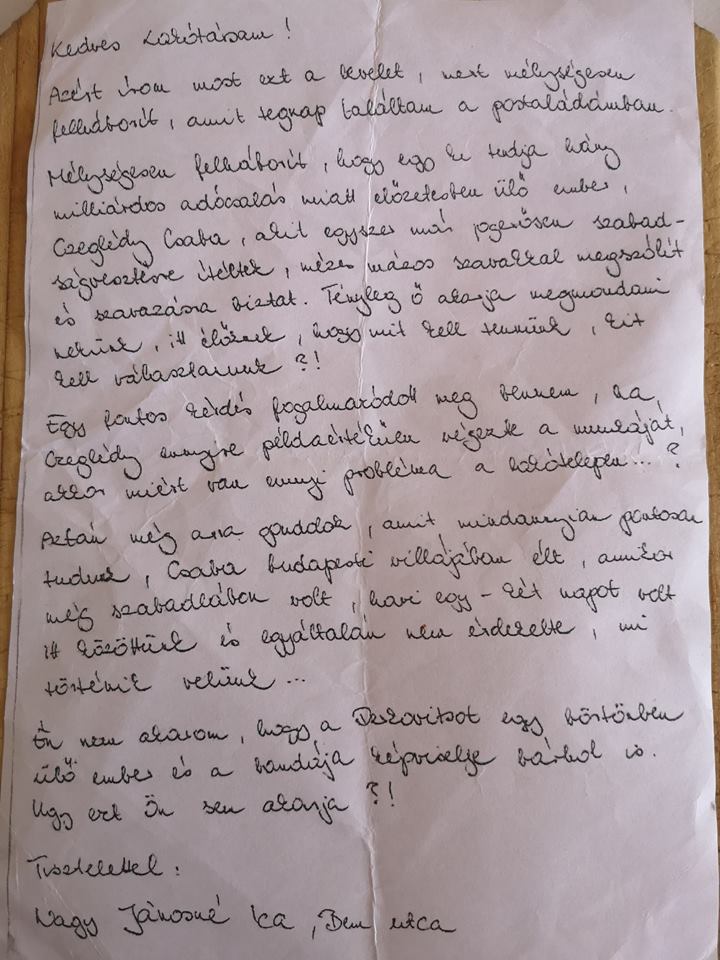 Kedves Lakótársam !
Azért írom most ezt a levelet, mert mélységesen
felháborít, amit tegnap találtam a postaládámban.
Mélységesen felháborít, hogy egy ki tudja hány
milliárdos adócsalás miatt előzetesben ülő ember,
Czeglédy Csaba, akit egyszer már jogerősen szabad-
ságvesztésre ítéltek, mézes mázos szavakkal megszólít
és szavazásra biztat. Tényleg ő akarja megmondani
nekünk, itt élőknek, hogy mit kell tennünk, kit
kell választanunk ?!
Egy fontos kérdés fogalmazódott meg bennem, ha,
Czeglédy ennyire példaértékűen végezte a munkáját,
akkor miért van ennyi probléma a lakótelepen... ?
Aztán még arra gondolok, amit mindannyian pontosan
tudunk, Csaba budapesti villájában élt, amikor
még szabadlábon volt, havi egy-két napot volt
itt közöttünk és egyáltalán nem érdekelte, mi
történik velünk ...
Én nem akarom, hogy a Derkovitsot egy börtönben
ülő ember és a bandája képviselje bárhol is.
Ugy ezt Ön sem akarja ?!
Tisztelettel:
Nagy Jánosné Ica, Bem utca